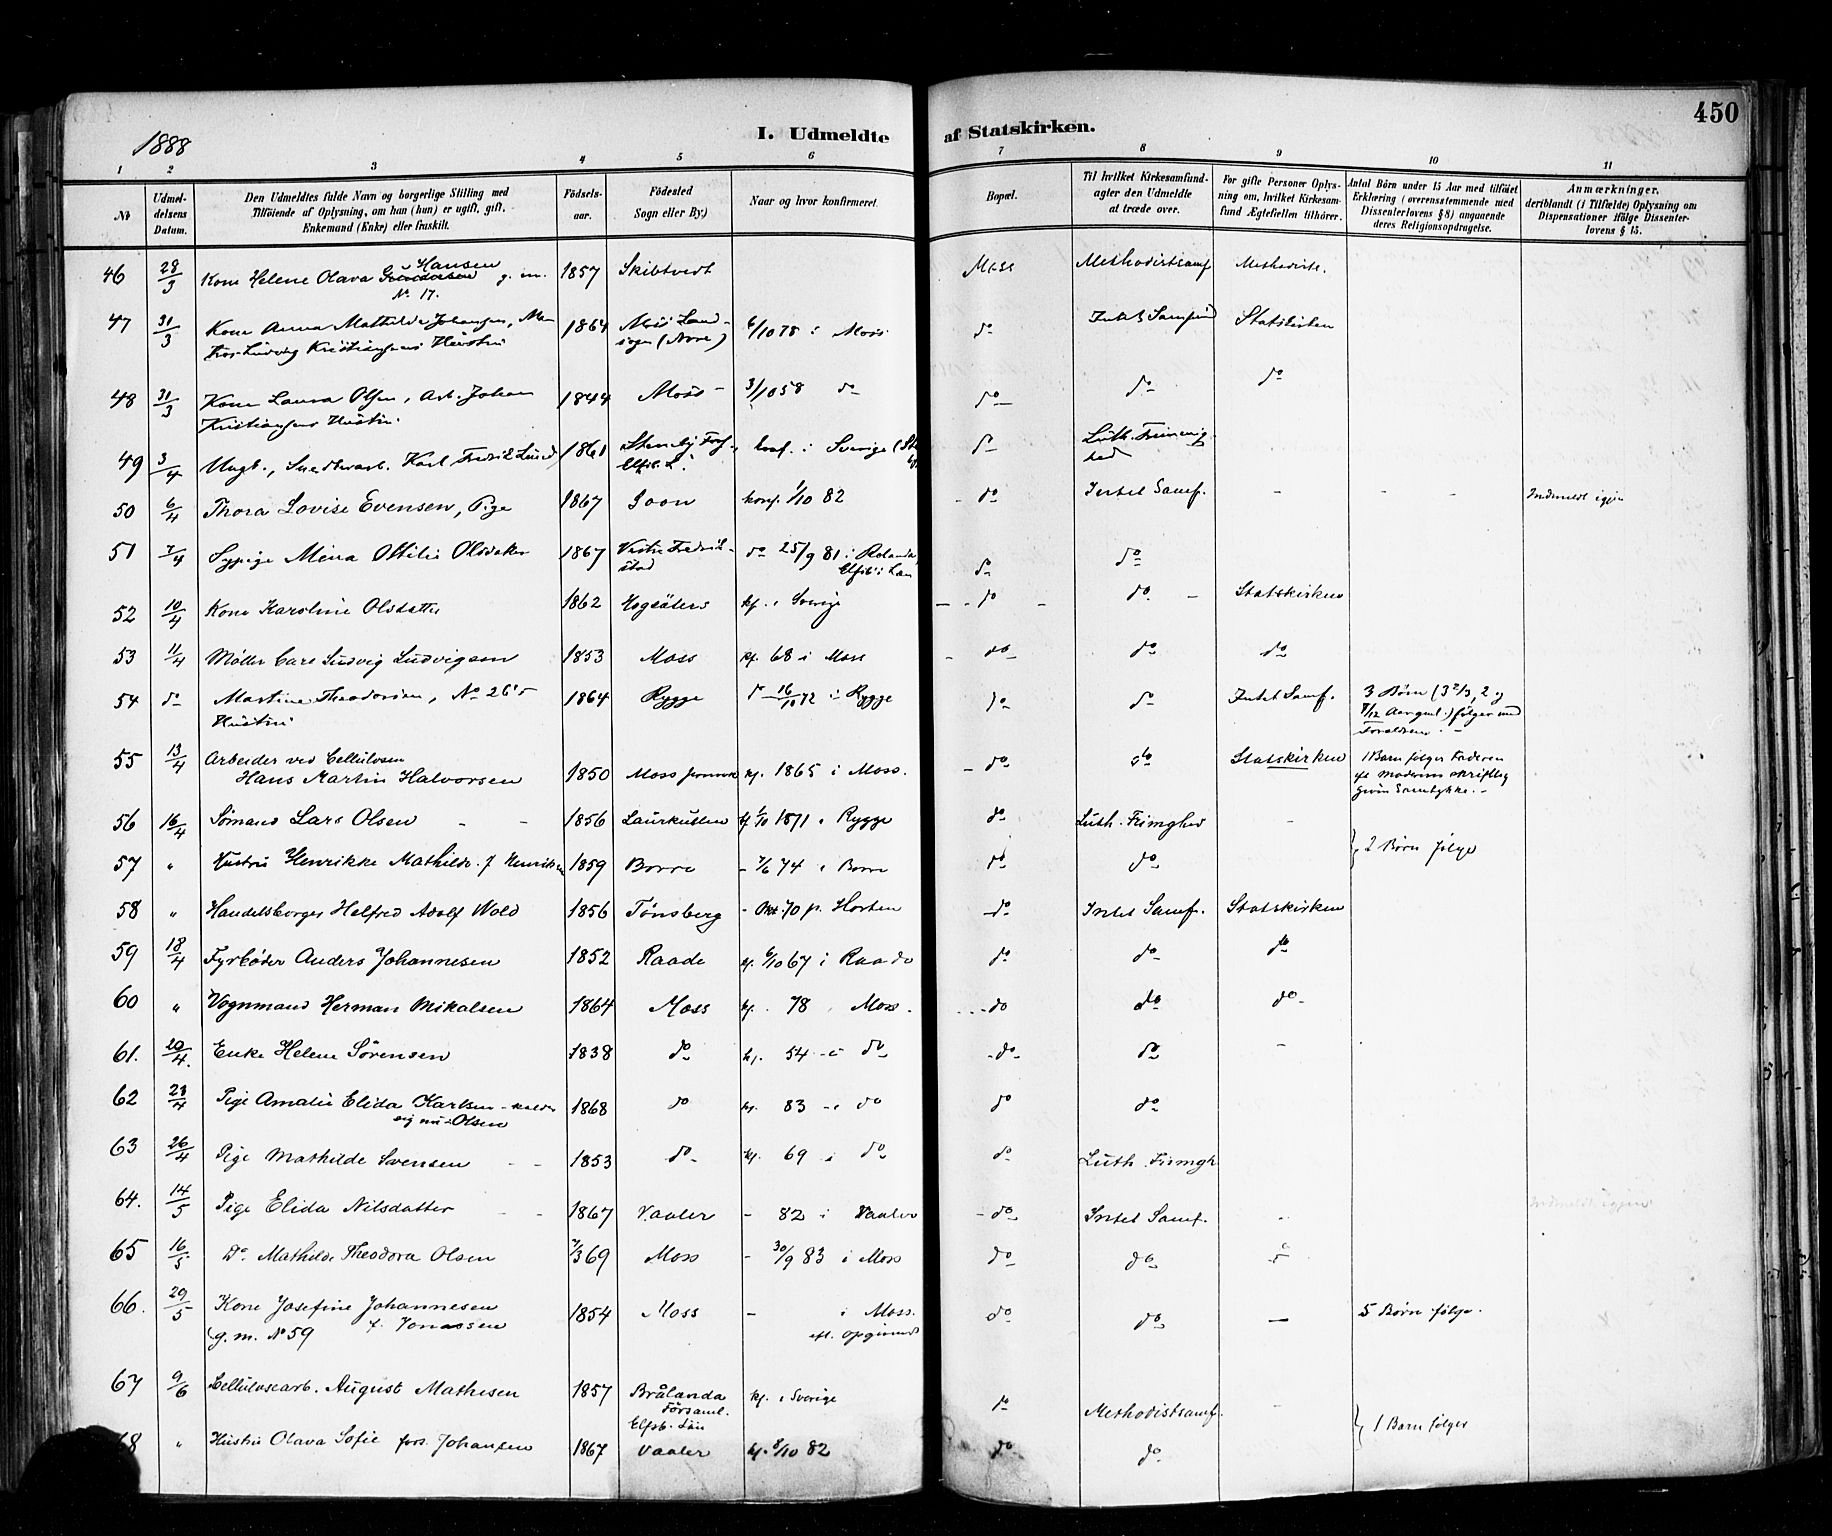 450
1888
I. Udmeldte af Statskirken.
1 2 3 4 5 6 7 8 9 10 11
No
Udmel-
delsens
Datum.
Den Udmeldtes fulde Navn og borgerlige Stilling med
Tilföiende af Oplysning, om han (hun) er ugift, gift,
Enkemand (Enke) eller fraskilt.
Födsels-
aar.
Födested
Sogn eller By)
Naar og hvor konfirmeret.
Bopæl.
Til hvilket Kirkesamfund
agter den Udmeldte
at træde over.
For gifte Personer Oplys-
ning om, hvilket Kirkesam-
fund Ægtefællen tilhörer.
Antal Börn under 15 Aar med tilföiet
Erklæring (overensstemmende med
Dissenterlovens § 8) angaaende
deres Religionsopdragelse.
Anmærkninger,
deriblandt (i Tilfælde) Oplysning om
Dispensationer ifölge Dissenter-
lovens § 15.
46 28/3 Kone Helene Olava Hansen g. m. 1857 Skibtvedt Moss Methodistsamf Methodist.
No 17.
47 31/3 Kone Anna Mathilde Johansen, 1864 Moss Land- 6/10 78 i Moss do Intet Samfund Statskirken
Ludvig Kristiansens Hustru sogn
48 31/3 Kone Laura Olsen, Arb. Johan 1844 Moss 3/10 58 do do do do
Kristiansens Hustru
49 3/4 Ungk., Karl Fredrik Lund 1861 konf. i Sverige do Luth. Frimenig-
hed
50 6/4 Thora Lovise Evensen, Pige 1867 Soon konf. 1/10 82 do Intet Samf. - - - Indmeldt igjen
51 7/4 Sypige Mina Ottilie Olsdatter 1867 Vestre Fredrik- do 25/9 81 i do do
stad Elfsb. Län
52 10/4 Kone Karoline Olsdatter 1862 Högsäters kf. i Sverige do do Statskirken
53 11/4 Møller Carl Ludvig Ludvigsen 1853 Moss kf. 68 i Moss do do do
54 do Martine Theodorsen, No 26's 1864 Rygge do 16/10 72 i Rygge do do Intet Samf. 3 Børn (3 2/3, 2 og
Hustru 8/12 Aar gml.) følger med
Forældrene.
55 13/4 Arbeider ved Cellulosen
Hans Martin Halvorsen 1850 Moss kf. 1865 i Moss. do do Statskirken 1 Barn følger Faderen
ef. Moderens skriftlig
given Samtykke.
56 16/4 Sømand Lars Olsen 1856 Laurkullen kf. 1/10 1871 i Rygge do Luth. Frimghed -
57 " Hustru Henrikke Mathilde f. Henriksen 1859 Borre - 7/6 74 i Borre do do } 2 Børn følge
58 " Handelsborger Halfred Adolf Wold 1856 Tönsberg - Okt. 70 p. Horten do Intet Samf. Statskirken
59 18/4 Fyrbøder Anders Johannesen 1852 Raade kf. 6/10 67 i Raade do do do
60 " Vognmand Herman Mikalsen 1864 Moss kf. 78 i Moss. do do do
61. 20/4. Enke Helene Sørensen 1838 do kf. 54 i do do do -
62 23/4 Pige Amalie Elida Karlsen - kalder 1868 do kf. 83 i do do do
sig nu Olsen
63 26/4 Pige Mathilde Svensen 1853 do kf. 69 i do do Luth. Frimgh
64. 14/5 Pige Elida Nilsdatter 1867 Vaaler - 82 i Vaaler do Intet Samf. - Indmeldt igjen
65 16/5 Do Mathilde Theodora Olsen 7/3 69 Moss - 30/9 83 i Moss do do
66. 29/5 Kone Josefine Johannesen 1854 Moss - i Moss. do do - 5 Børn følge.
f. Jonassen
(g. m. No 59 eft. opgivende
67 9/6 Cellulosearb. August Mathesen 1857 Brålanda kf. i Sverige do Methodistsamf. -
Församl.
Elfsb. Län
68 " Hustru Olava Sofie fød. Johansen 1867 Vaaler kf. 8/10 82 do do } 1 Barn følger